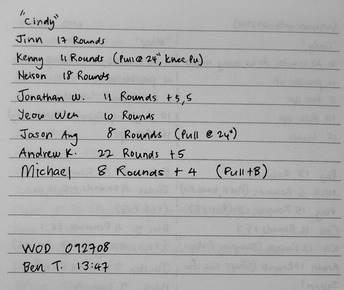 "Cindy"
Jinn 17 Rounds
Kenny 11 Rounds (Pull @ 24", Knee PU)
Nelson 18 Rounds
Jonathan W. 11 Rounds +5,5
Yeow Wen 10 Rounds
Jason Ang 8 Rounds (Pull @ 24")
Andrew K. 22 Rounds +5
Michael 8 Rounds + 4 (Pull +8)
WOD 092708
Ben T. 13:47